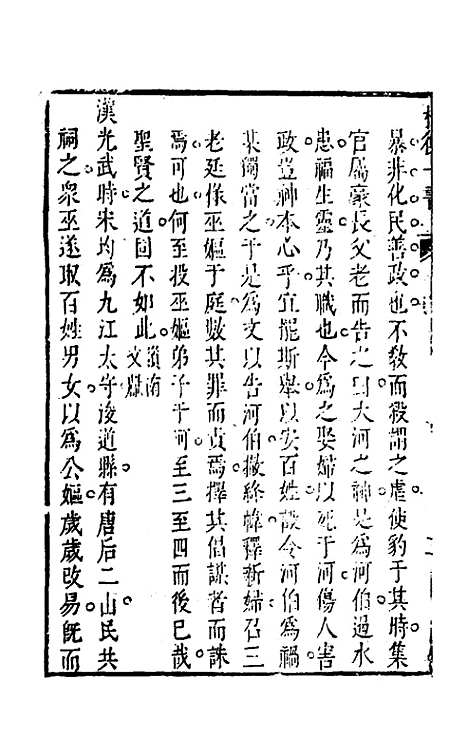 暴非化民善政也不教而殺謂之虐使豹于其時集
官屬豪長父老而告之曰大河之神是爲河伯過水
患福生靈乃其職也今爲之娶婦以死于河傷人害
政豈神本心乎宜罷斯舉以安百姓設令河伯爲禍
某獨當之于是爲文以告河伯撤絲幃釋新婦召三
老廷掾巫嫗于庭數其罪而責焉擇其倡謀者而誅
焉可也何至投巫嫗弟子于河至三至四而後已哉
聖賢之道固不如此嶺南文獻
漢光武時宋均爲九江太守浚道縣有唐后二山民共
祠之衆巫遂取百姓男女以爲公嫗歲歲改易旣而